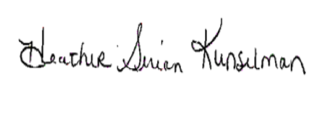 Heather Sirian Kunselman